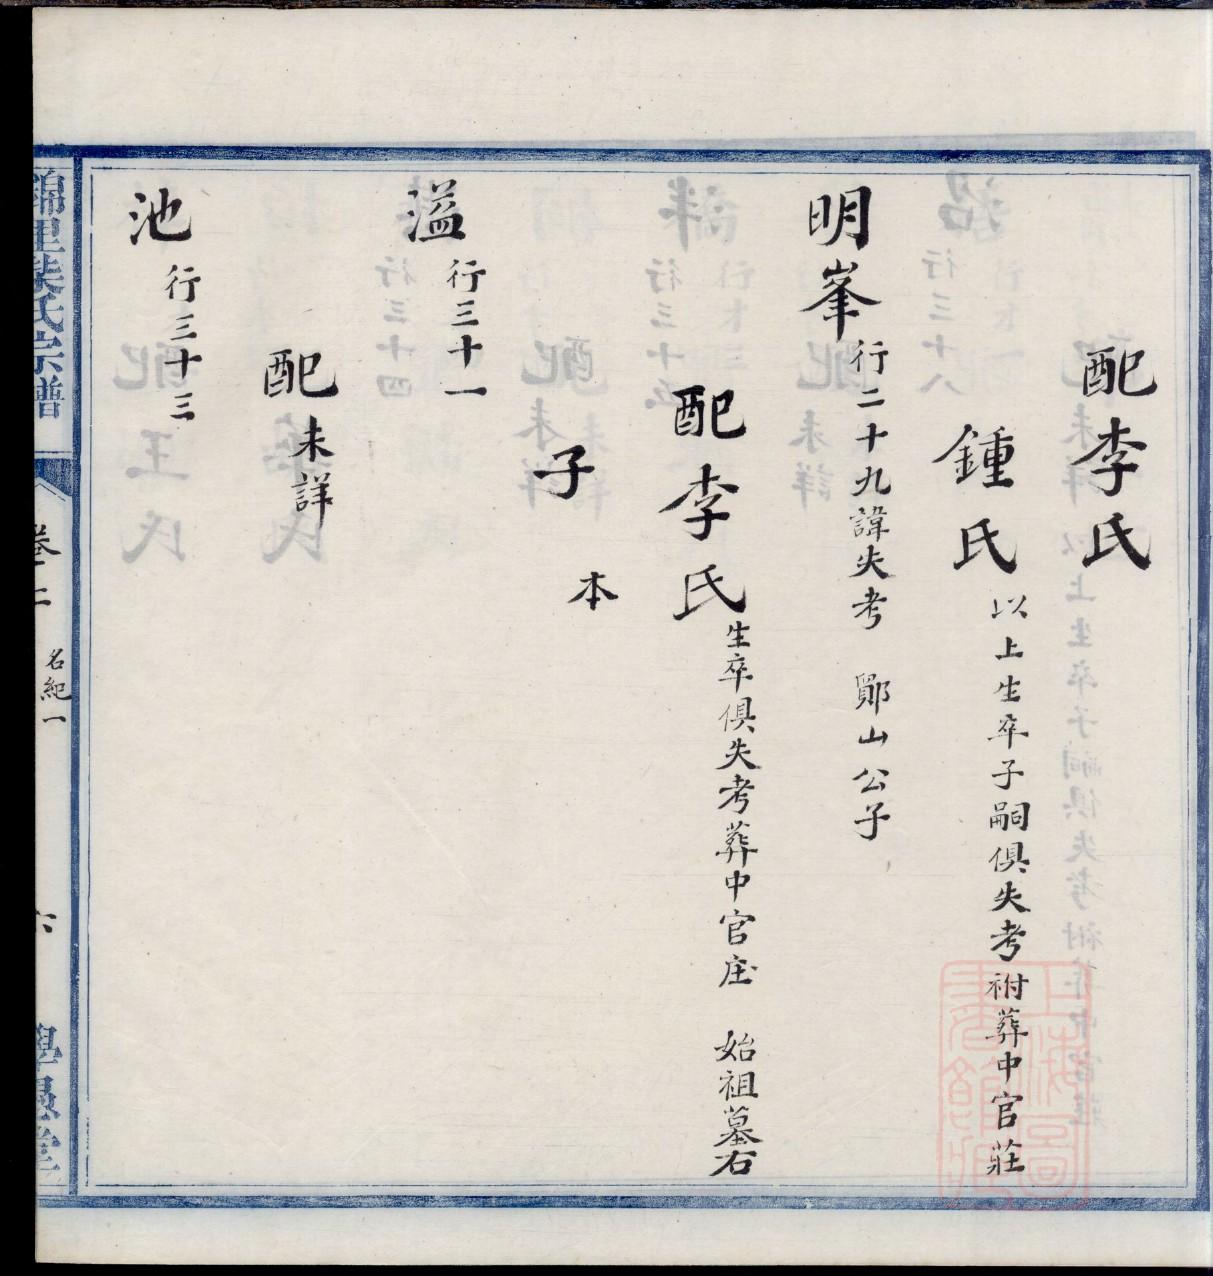 配李氏
鍾氏 以上生卒子嗣俱失考祔葬中官莊
明峯 行二十九諱失考 鄖山公子
配李氏 生卒俱失考葬中官庄 始祖墓右
子 本
溢 行三十一
配 未詳
池 行三十三
錦里柴氏宗譜 卷二 名紀一 六